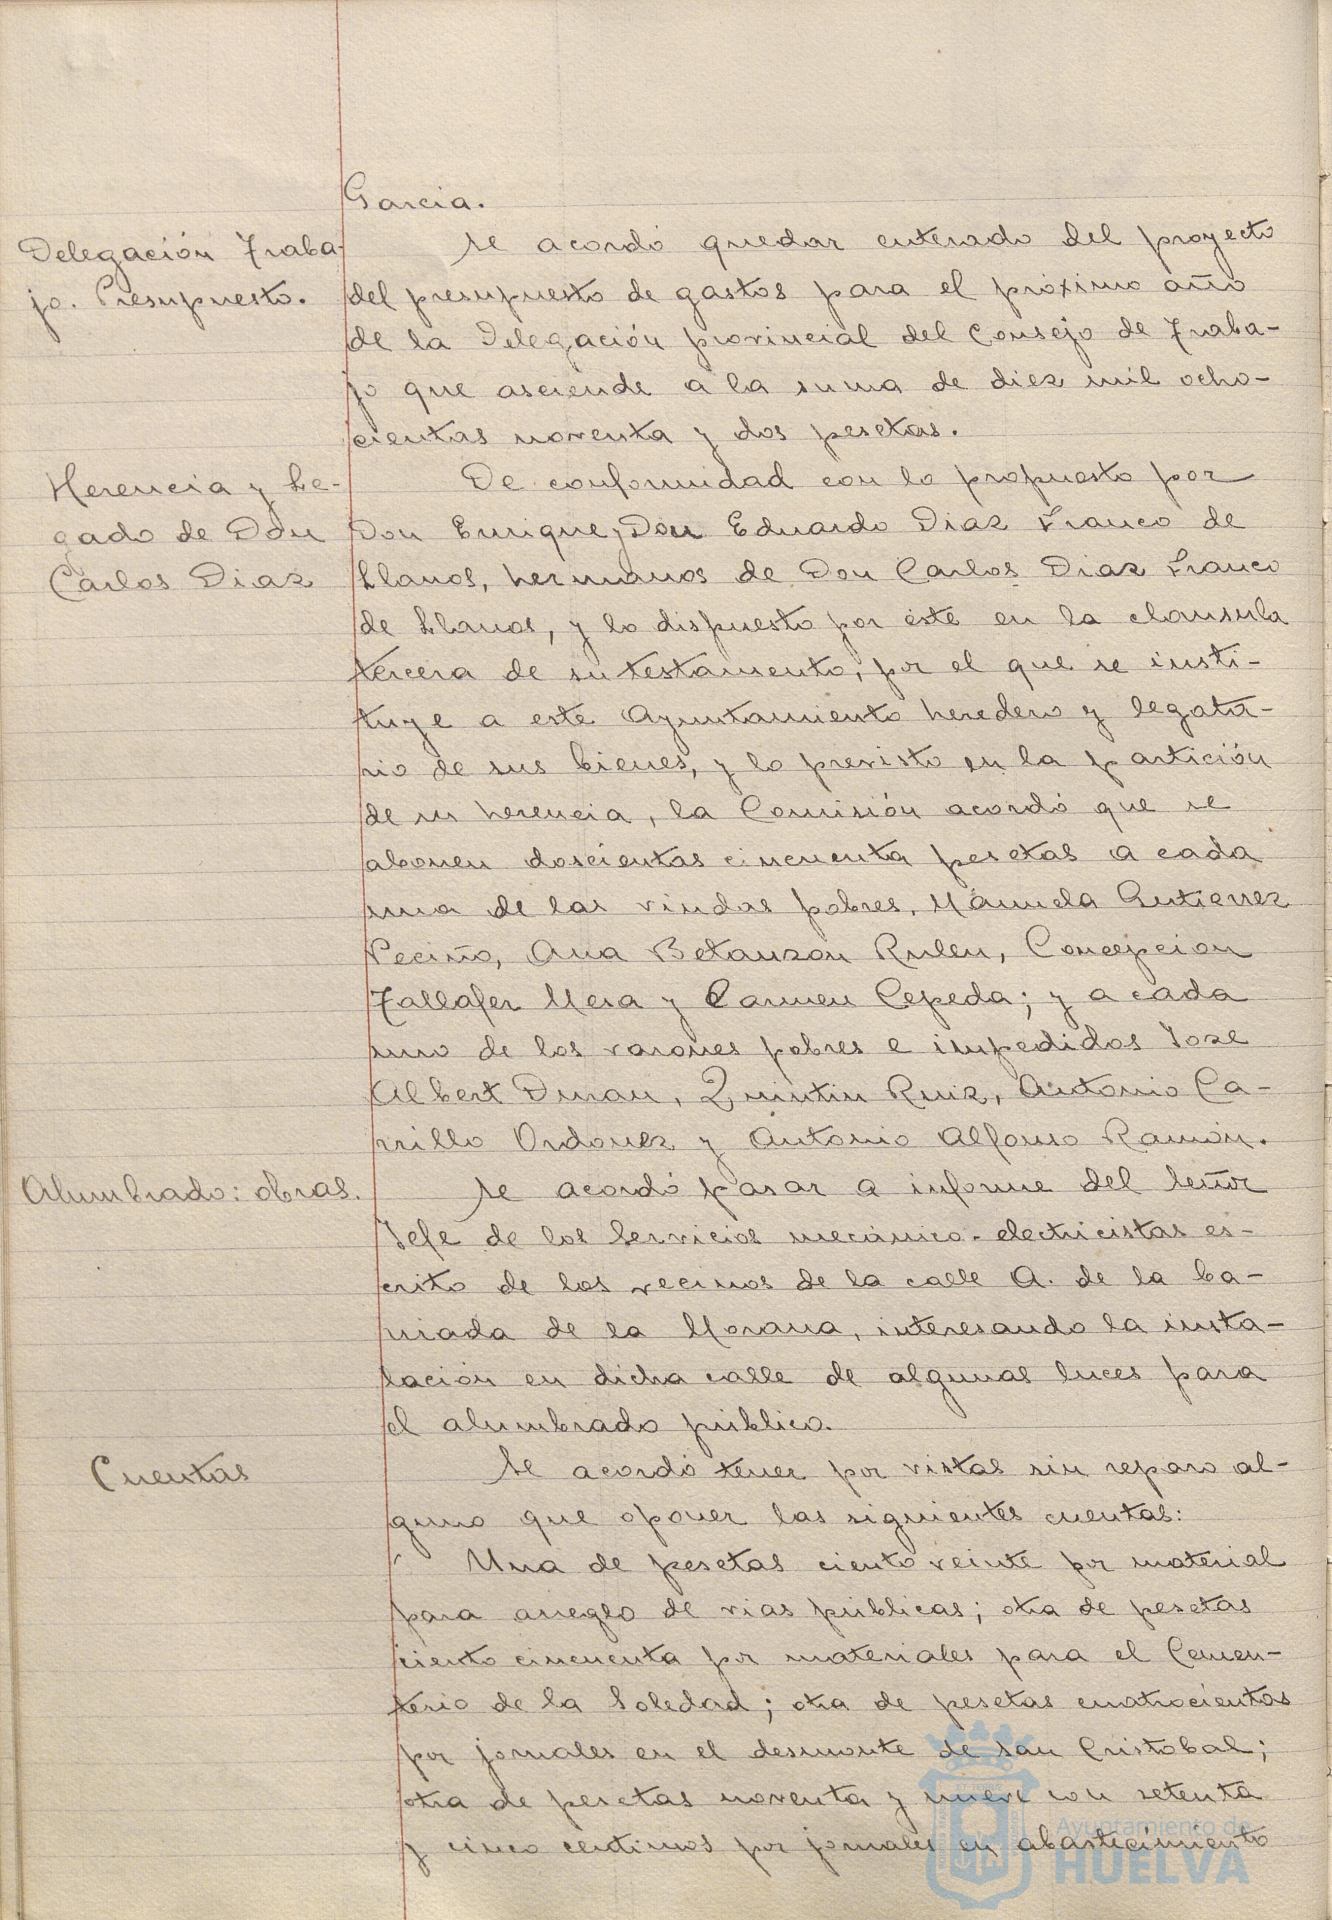 Garcia.
Delegación Traba-
jo. Presupuesto.
Se acordó quedar enterado del proyecto
del presupuesto de gastos para el próximo año
de la Delegación provincial del Consejo de Traba-
jo que asciende a la suma de diez mil ocho-
cientas noventa y dos pesetas.
Herencia y Le-
gado de Don
Carlos Diaz
De conformidad con lo propuesto por
Don Enrique y Don Eduardo Diaz Franco de
Llanos, hermanos de Don Carlos Diaz Franco
de Llanos, y lo dispuesto por éste en la clausula
tercera de su testamento, por el que se insti-
tuye a este Ayuntamiento heredero y legata-
rio de sus bienes, y lo previsto en la partición
de su herencia, la Comisión acordó que se
abonen doscientas cincuenta pesetas a cada
una de las viudas pobres, Manuela Gutierrez
Peciño, Ana Betanzon Rulen, Concepcion
Tallafer Mera y Carmen Cepeda; y a cada
uno de los varones pobres e impedidos Jose
Albert Duran, Quintin Ruiz, Antonio Ca-
rrillo Ordoñez y Antonio Alfonso Ramón.
Alumbrado: obras.
Se acordó pasar a informe del Señor
Jefe de los Servicios mecánico-electricistas es-
crito de los vecinos de la calle A. de la ba-
rriada de la Morana, interesando la insta-
lación en dicha calle de algunas luces para
el alumbrado público.
Cuentas
Se acordó tener por vistas sin reparo al-
guno que oponer las siguientes cuentas:
Una de pesetas ciento veinte por material
para arreglo de vias públicas; otra de pesetas
ciento cincuenta por materiales para el Cemen-
terio de la Soledad; otra de pesetas cuatrocientas
por jornales en el desmonte de San Cristobal;
otra de pesetas noventa y nueve con setenta
y cinco centimos por jornales en abastecimiento
Ayuntamiento de
HUELVA